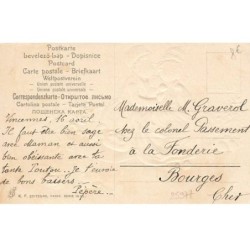 Postkarte
Levelező-Lap - Dopisnice
Postcard
Carte postale - Briefkaart
Weltpostverein
Correspondenzkarte - Открытое письмо
Cartolina postale - Tarjeta Postal
Vincennes, 16 avril
Il faut être bien sage
avec maman et aussi
bien obéissante avec ta
tante Je t'envoie
de bons baisers
Pépère
Mademoiselle M. Graverol
chez le colonel Passement
à la Fonderie
Bourges
Cher